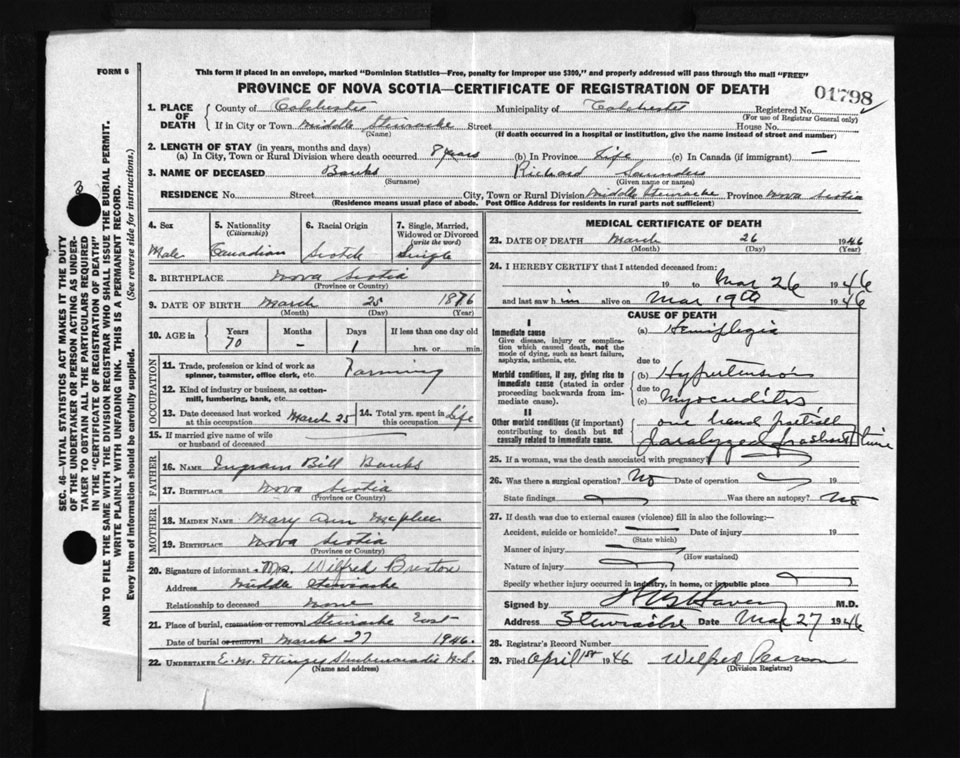 FORM 6
This form if placed in an envelope, marked "Dominion Statistics—Free, penalty for improper use $300," and properly addressed will pass through the mail "FREE"
PROVINCE OF NOVA SCOTIA—CERTIFICATE OF REGISTRATION OF DEATH
01798
1. PLACE OF DEATH County of Colchester Municipality of Colchester Registered No.
(For use of Registrar General only)
If in City or Town Middle Stewiacke Street House No.
(Name) (If death occurred in a hospital or institution, give the name instead of street and number)
2. LENGTH OF STAY (in years, months and days)
(a) In City, Town or Rural Division where death occurred 8 years (b) In Province Life (c) In Canada (if immigrant) —
3. NAME OF DECEASED Banks Richard Saunders
(Surname) (Given name or names)
RESIDENCE No. Street City, Town or Rural Division Middle Stewiacke Province Nova Scotia
(Residence means usual place of abode. Post Office Address for residents in rural parts not sufficient)
4. Sex 5. Nationality (Citizenship) 6. Racial Origin 7. Single, Married, Widowed or Divorced (write the word)
Male Canadian Scotch Single
8. BIRTHPLACE Nova Scotia
(Province or Country)
9. DATE OF BIRTH March 25 1876
(Month) (Day) (Year)
10. AGE in Years Months Days If less than one day old
70 — 1 hrs. or min.
OCCUPATION
11. Trade, profession or kind of work as spinner, teamster, office clerk, etc. Farming
12. Kind of industry or business, as cotton-mill, lumbering, bank, etc.
13. Date deceased last worked at this occupation March 25 14. Total yrs. spent in this occupation Life
15. If married give name of wife or husband of deceased
FATHER
16. NAME Ingram Bill Banks
17. BIRTHPLACE Nova Scotia
(Province or Country)
MOTHER
18. MAIDEN NAME Mary Ann McPhee
19. BIRTHPLACE Nova Scotia
(Province or Country)
20. Signature of informant Mrs. Wilfred Brenton
Address Middle Stewiacke
Relationship to deceased none
21. Place of burial, cremation or removal Stewiacke East
Date of burial or removal March 27 1946.
22. UNDERTAKER E. M. Shubenacadie N.S.
(Name and address)
MEDICAL CERTIFICATE OF DEATH
23. DATE OF DEATH March 26 1946
(Month) (Day) (Year)
24. I HEREBY CERTIFY that I attended deceased from:
19 to Mar 26 1946
and last saw him alive on Mar 19th 1946
CAUSE OF DEATH
I
Immediate cause (a) Hemiplegia
Give disease, injury or complication which caused death, not the mode of dying, such as heart failure, asphyxia, asthenia, etc.
due to
Morbid conditions, if any, giving rise to immediate cause (stated in order proceeding backwards from immediate cause).
(b) Hypertension
due to
(c) Myocarditis
II
Other morbid conditions (if important) contributing to death but not causally related to immediate cause.
one hand partially
paralyzed
25. If a woman, was the death associated with pregnancy?
26. Was there a surgical operation? No Date of operation 19
State findings Was there an autopsy? No
27. If death was due to external causes (violence) fill in also the following:—
Accident, suicide or homicide? Date of injury 19
(State which)
Manner of injury
(How sustained)
Nature of injury
Specify whether injury occurred in industry, in home, or in public place
Signed by M.D.
Address Stewiacke Date Mar 27 1946
28. Registrar's Record Number
29. Filed April 1st 1946 Wilfred Pearson
(Division Registrar)
SEC. 46—VITAL STATISTICS ACT MAKES IT THE DUTY
OF THE UNDERTAKER OR PERSON ACTING AS UNDER-
TAKER TO OBTAIN ALL THE PARTICULARS REQUIRED
IN THE "CERTIFICATE OF REGISTRATION OF DEATH"
AND TO FILE THE SAME WITH THE DIVISION REGISTRAR WHO SHALL ISSUE THE BURIAL PERMIT.
WRITE PLAINLY WITH UNFADING INK. THIS IS A PERMANENT RECORD.
Every item of information should be carefully supplied. (See reverse side for instructions.)